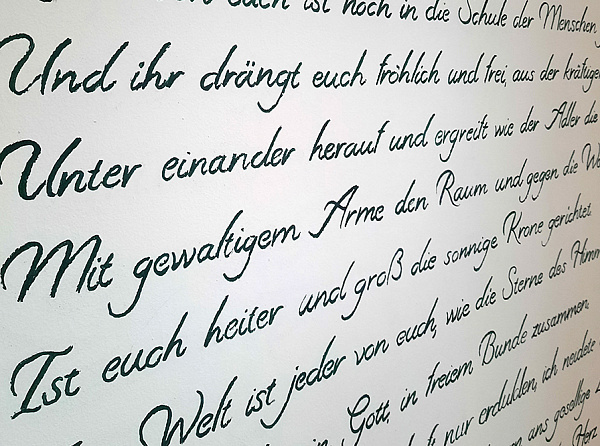 euch ist noch in die Schule der Menschen
Und ihr drängt euch fröhlich und frei, aus der kräftigen
Unter einander herauf und ergreift wie der Adler die
Mit gewaltigem Arme den Raum und gegen die
Ist euch heiter und groß die sonnige Krone gerichtet
Welt ist jeder von euch, wie die Sterne des
Gott, in freiem Bunde zusammen.
nur erdulden, ich neidete
ans gesellige
Herz